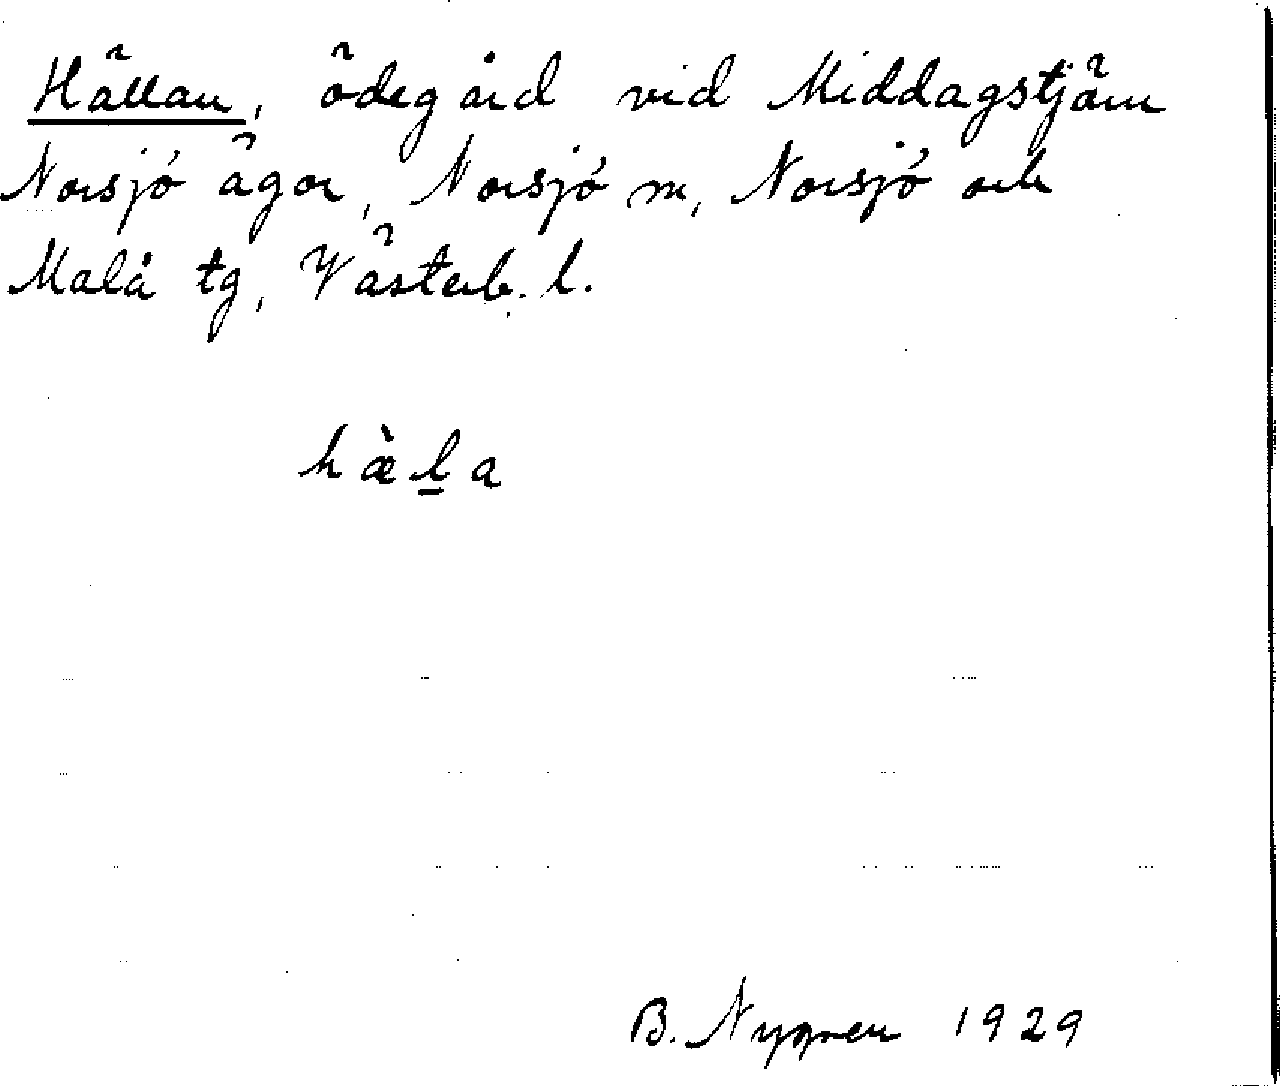 Hällan, ödegård vid Middagstjärn
Norsjö ägor, Norsjö sn, Norsjö och
Malå tg, Västerb. l.
hæ̀l̲a
B. Nygren 1929